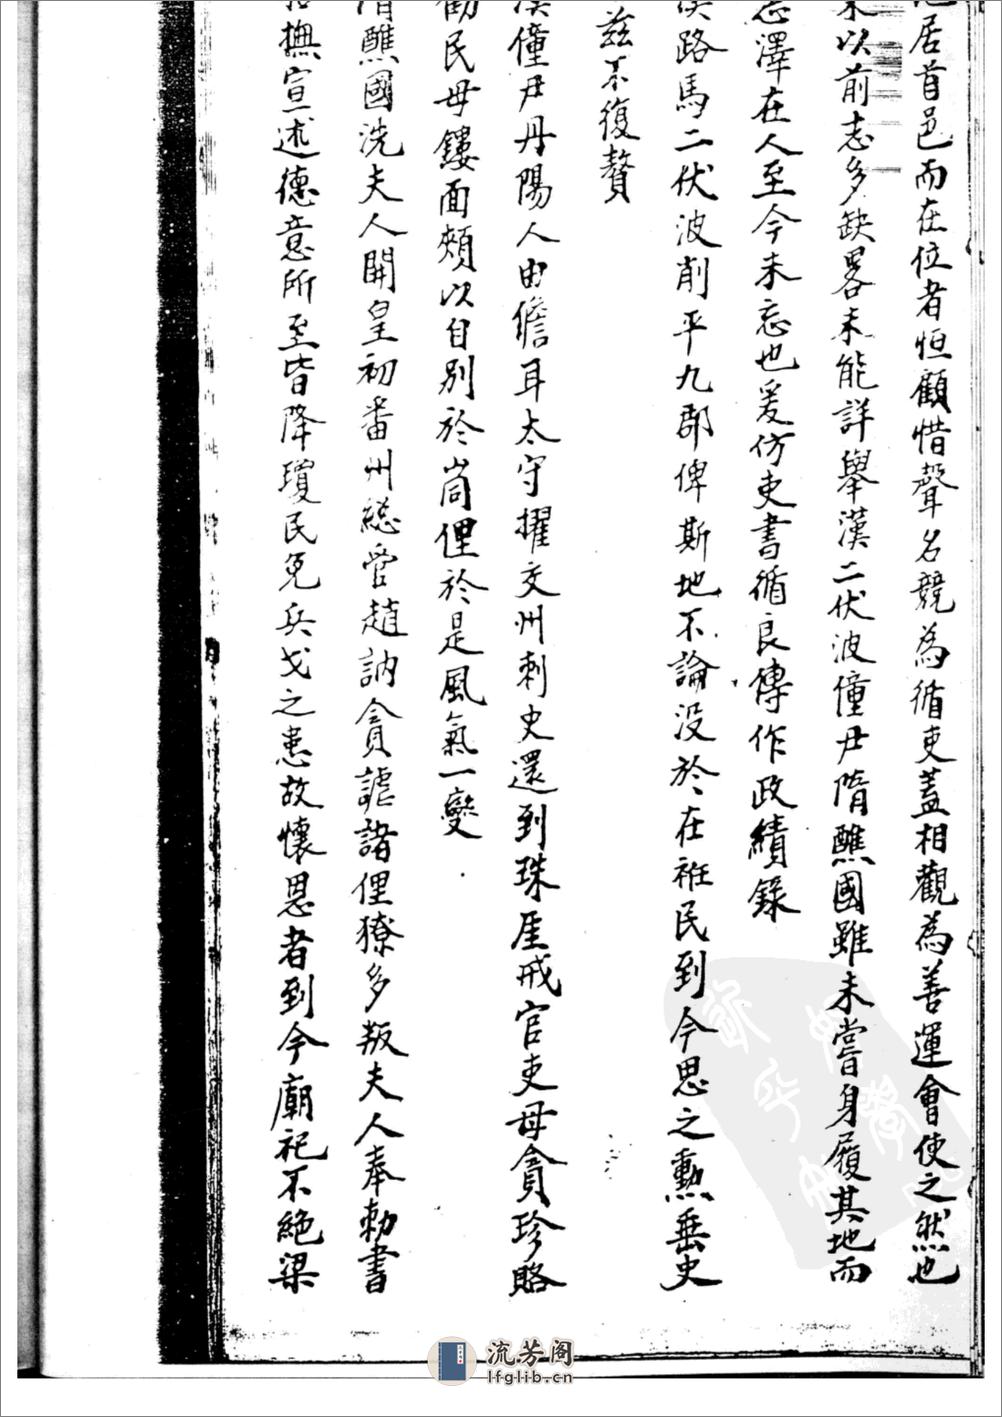 居首邑而在位者恒顧惜聲名競為循吏蓋相觀為善運會使之然也
以前志多缺畧未能詳舉漢二伏波僮尹隋醮國雖未嘗身履其地而
澤在人至今未忘也爰仿吏書循良傳作政績錄
路馬二伏波削平九郡俾斯地不論没於在袵民到今思之勲垂史
茲不復贅
僮尹丹陽人由儋耳太守擢交州刺史還到珠厓戒官吏毋貪珍賂
勸民毋鏤面頰以自別於峝俚於是風氣一變
醮國洗夫人開皇初番州總管趙訥貪謔諸俚獠多叛夫人奉勅書
撫宣述德意所至皆降瓊民免兵戈之患故懷恩者到今廟祀不絶梁
流芳阁
lfglib.cn